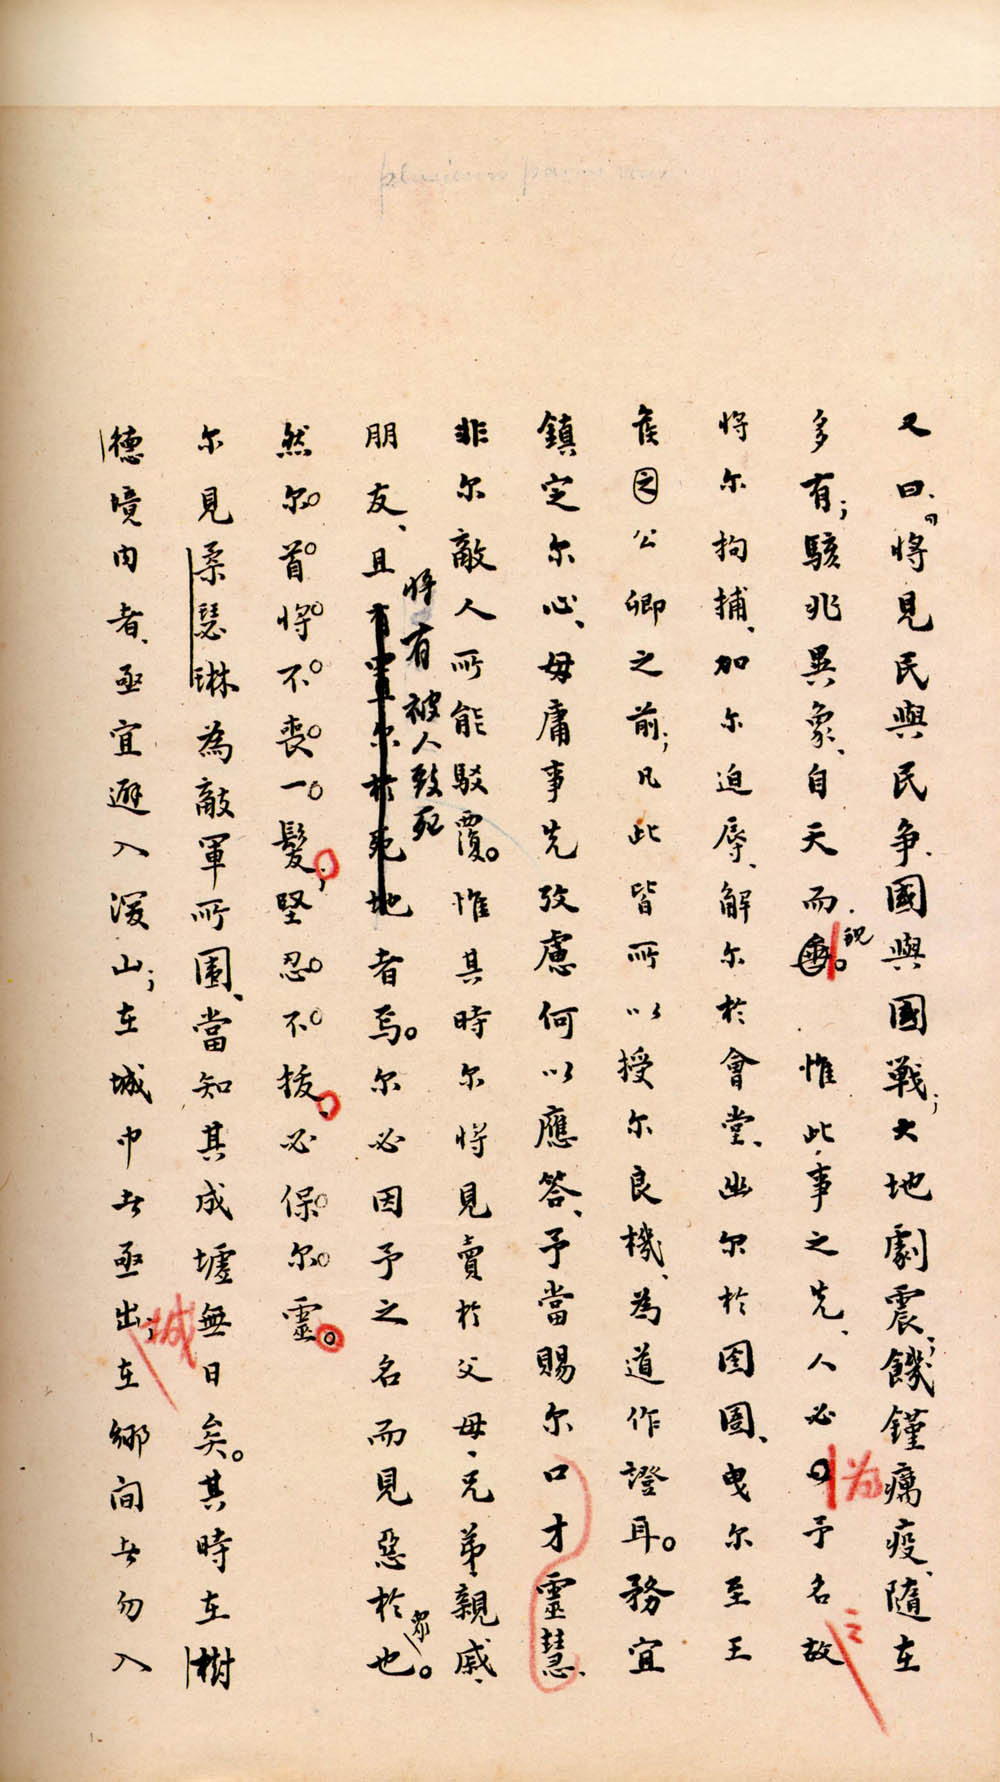 又曰、「將見民與民争、國與國戰；大地劇震；饑饉癘疫、隨在
多有；駭兆異象、自天而現。惟此事之先、人必因為予名之故
將尔拘捕、加尔迫辱、解尔於會堂、幽尔於囹圄、曳尔至王
侯之公卿之前；凡此皆所以授尔良機、為道作證耳。務宜
鎮定尔心、毋庸事先攷慮何以應答、予當賜尔口才靈慧、
非尔敵人所能駁覆。惟其時尔將見賣於父母、兄弟、親戚、
朋友、且將有被人致死者焉。尔必因予之名而見惡於眾也。
然尔首將不喪一髮；堅忍不拔、必保尔靈。
尔見柔瑟琳為敵軍所圍、當知其成墟無日矣。其時在樹
德境内者、亟宜避入深山；在城中者亟出城；在鄉间者勿入